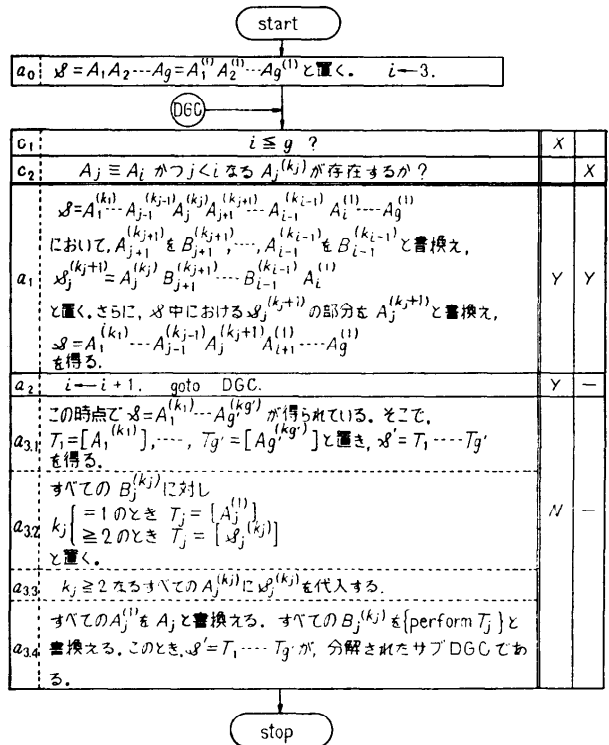 start
a₀ 𝒮 = A₁A₂---Ag = A₁⁽¹⁾A₂⁽¹⁾---Ag⁽¹⁾と置く。 i←3.
DGC
c₁ i ≦ g ? X
c₂ Aⱼ ≡ Aᵢ かつ j<i なる Aⱼ^(kⱼ) が存在するか? X
𝒮=A₁^(k₁)---A_{j-1}^(k_{j-1}) A_j^(k_j) A_{j+1}^(k_{j+1})---A_{i-1}^(k_{i-1}) A_i^(1)---Ag^(1)
において, A_{j+1}^(k_{j+1}) を B_{j+1}^(k_{j+1}), ---, A_{i-1}^(k_{i-1}) を B_{i-1}^(k_{i-1}) と書換え,
a₁ 𝒮_j^(k_j+1) = A_j^(k_j) B_{j+1}^(k_{j+1})---B_{i-1}^(k_{i-1}) A_i^(1) Y Y
と置く. さらに, 𝒮中における 𝒮_j^(k_j+1) の部分を A_j^(k_j+1) と書換え,
𝒮=A₁^(k₁)---A_{j-1}^(k_{j-1}) A_j^(k_j+1) A_{i+1}^(1)---Ag^(1)
を得る.
a₂ i←i+1. goto DGC. Y —
この時点で 𝒮=A₁^(k₁)---Ag'^(kg') が得られている. そこで,
a₃.₁ T₁=[A₁^(k₁)], ----, Tg'=[Ag'^(kg')] と置き, 𝒮'=T₁----Tg'
を得る.
すべての B_j^(k_j) に対し
a₃.₂ k_j { =1のとき T_j = [A_j^(1)] N —
≧2のとき T_j = [𝒮_j^(k_j)]
と置く.
a₃.₃ k_j ≧2 なるすべての A_j^(k_j) に 𝒮_j^(k_j) を代入する.
すべての A_j^(1) を A_j と書換える. すべての B_j^(k_j) を{perform T_j}と
a₃.₄ 書換える. このとき, 𝒮'=T₁----Tg' が, 分解されたサブDGCであ
る.
stop